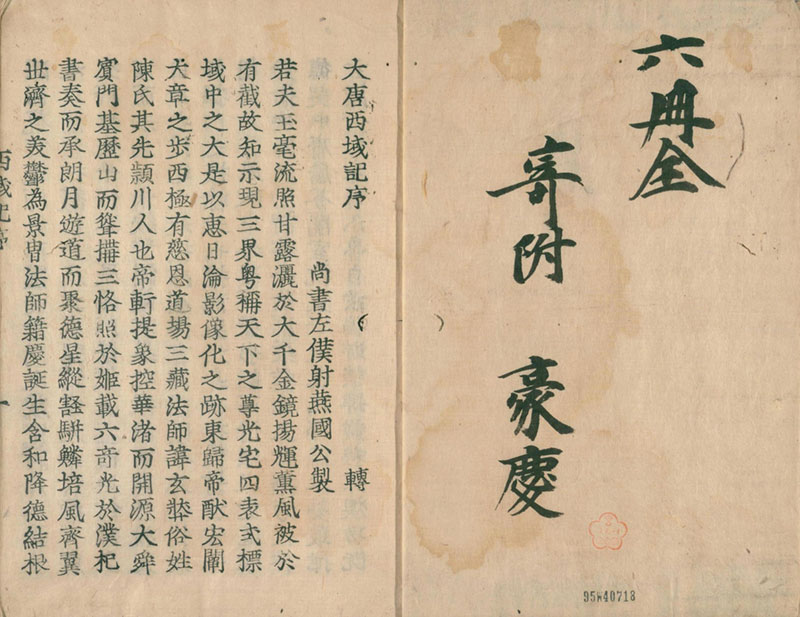 六冊全
寄附 豪慶
95W40718
大唐西域記序 轉
尚書左僕射燕國公製
若夫玉毫流照甘露灑於大千金鏡揚輝薰風被於
有截故知示現三界粤稱天下之尊光宅四表式標
域中之大是以惠日淪影像化之跡東歸帝猷宏闡
大章之步西極有慈恩道場三藏法師諱玄奘俗姓
陳氏其先頴川人也帝軒提象控華渚而開源大舜
賓門基歷山而聳搆三恪照於姬載六奇光於漢祀
書奏而承朗月遊道而聚德星縱壑駢鱗培風齊翼
世濟之美鬱為景胄法師籍慶誕生含和降德結根
西域記序 一